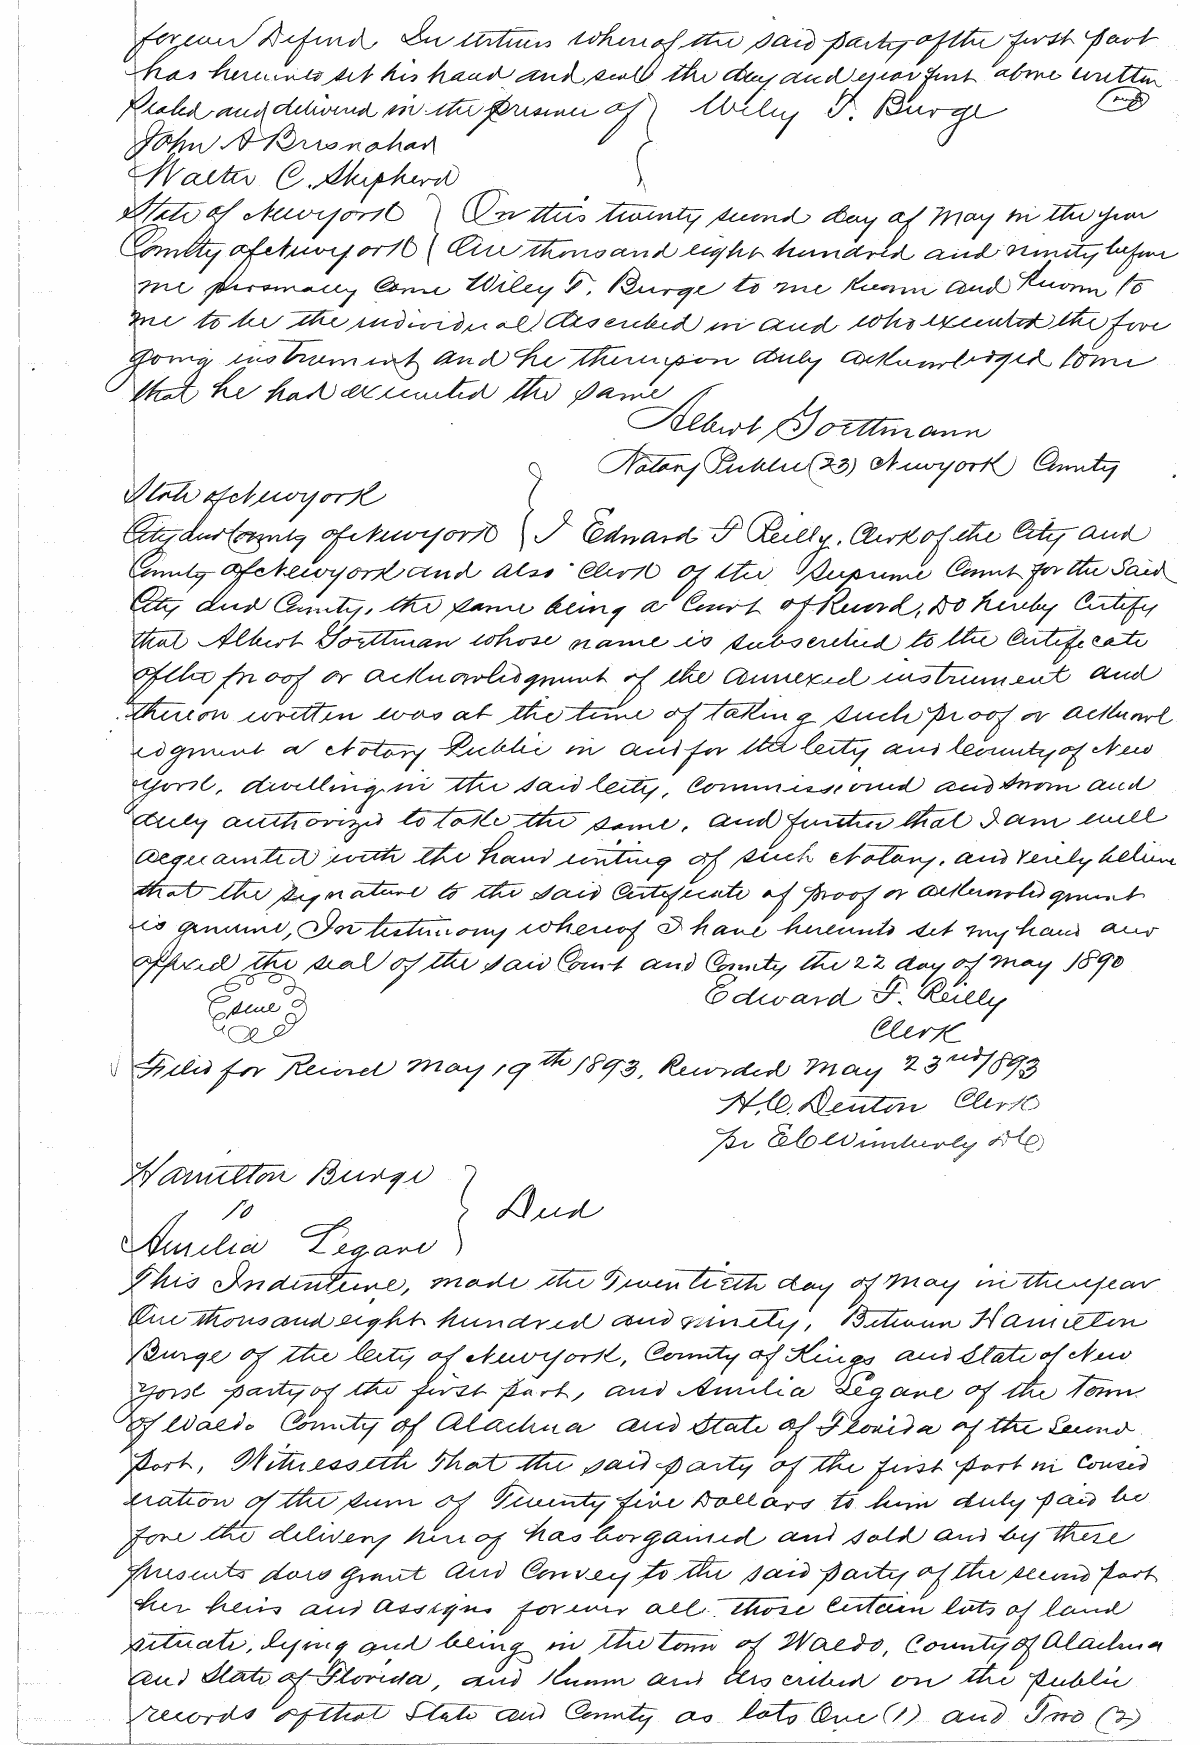 forever Defend In witness whereof the said party of the first part
has hereunto set his hand and seal the day and year first above written
Sealed and delivered in the presence of } Wiley T. Burge (seal)
John A Brisnahan
Walter C. Shepherd
State of Newyork } On this twenty second day of May in the year
County of Newyork } One thousand eight hundred and ninety before
me personally came Wiley T. Burge to me known and known to
me to be the individual described in and who executed the fore
going instrument and he thereupon duly acknowledged to me
that he had executed the same
Albert Goettmann
Notary Public (23) Newyork County
State of Newyork
City and County of Newyork } I Edward F Reilly, Clerk of the City and
County of Newyork and also Clerk of the Supreme Court for the Said
City and County, the same being a Court of Record, Do hereby Certify
that Albert Goettman whose name is subscribed to the Certificate
of the proof or acknowledgment of the annexed instrument and
thereon written was at the time of taking such proof or acknowl
edgment a Notary Public in and for the City and County of New
York, dwelling in the said City, Commissioned and sworn and
duly authorized to take the same, and further that I am well
acquainted with the hand writing of such Notary, and verily believe
that the signature to the said Certificate of proof or acknowledgment
is genuine, In testimony whereof I have hereunto set my hand and
affixed the seal of the said Court and County the 22 day of May 1890
Seal Edward F. Reilly
Clerk
Filed for Record May 19th 1893, Recorded May 23nd/1893
H.C. Denton Clerk
pr E C Wimberly DC
Hamilton Burge
to } Deed
Amelia Legare
This Indenture, made the Twentieth day of May in the year
One thousand eight hundred and ninety, Between Hamilton
Burge of the City of Newyork, County of Kings and State of New
York party of the first part, and Amelia Legare of the town
of Waldo County of Alachua and State of Florida of the Second
part, Witnesseth That the said party of the first part in consid
eration of the sum of Twenty five Dollars to him duly paid be
fore the delivery hereof has bargained and sold and by these
presents does grant and Convey to the said party of the second part
her heirs and assigns forever all those certain lots of land
situate, lying and being in the town of Waldo, County of Alachua
and State of Florida, and known and described on the public
records of that State and County as lots One (1) and Two (2)